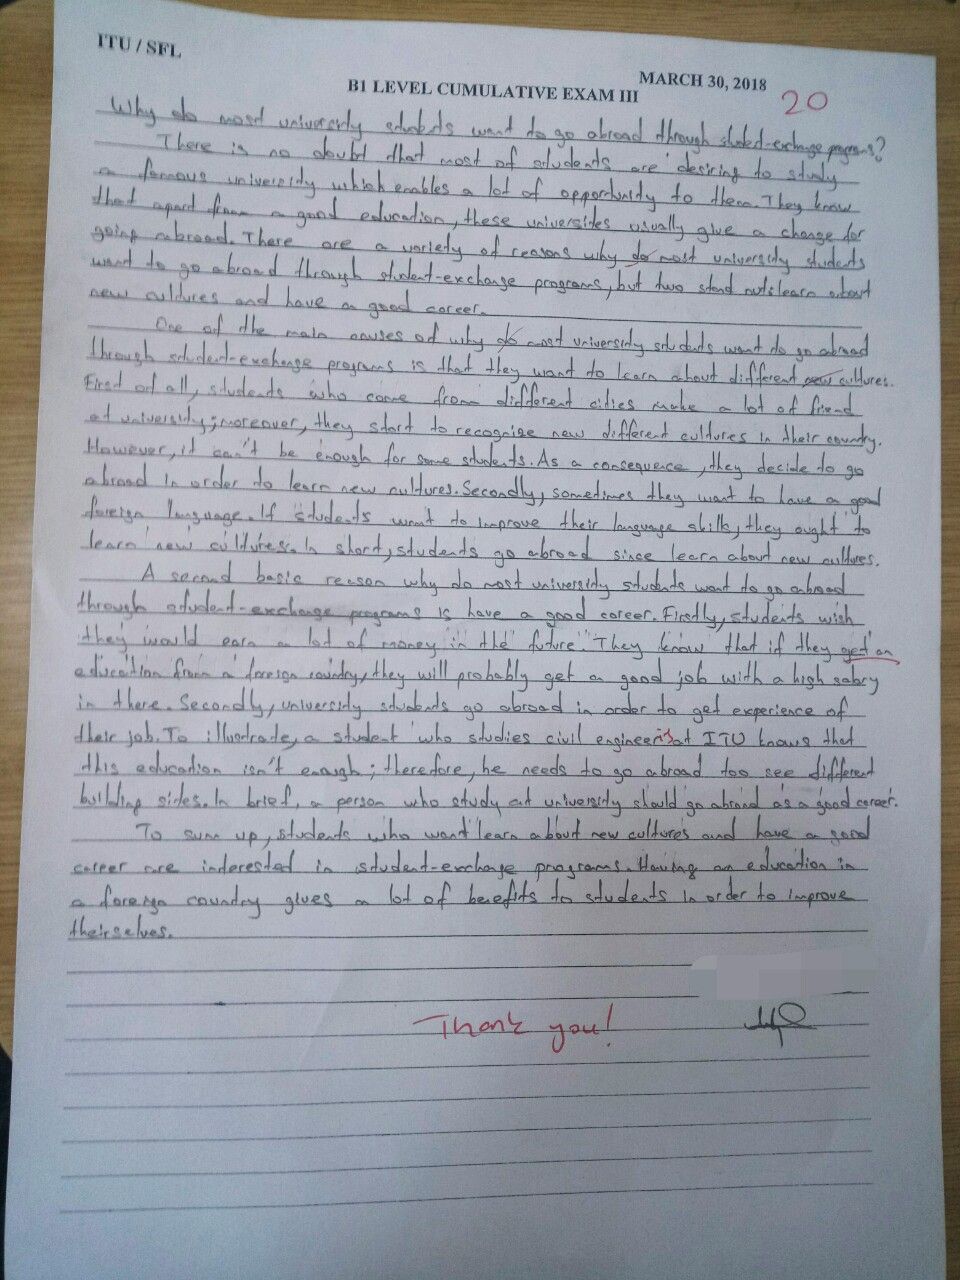 ITU / SFL
MARCH 30, 2018
B1 LEVEL CUMULATIVE EXAM III
20
Why do most university students want to go abroad through student-exchange programs?
There is no doubt that most of students are desiring to study
a famous university which enables a lot of opportunity to them. They know
that apart from a good education, these universities usually give a change for
going abroad. There are a variety of reasons why do most university students
want to go abroad through student-exchange programs, but two stand out: learn about
new cultures and have a good career.
One of the main causes of why do most university students want to go abroad
through student-exchange programs is that they want to learn about different new cultures.
First of all, students who come from different cities make a lot of friend
at university; moreover, they start to recognise new different cultures in their country.
However, it can't be enough for some students. As a consequence, they decide to go
abroad in order to learn new cultures. Secondly, sometimes they want to have a good
foreign language. If students want to improve their language skills, they ought to
learn new cultures. In short, students go abroad since learn about new cultures.
A second basic reason why do most university students want to go abroad
through student-exchange programs is have a good career. Firstly, students wish
they would earn a lot of money in the future. They know that if they get an
education from a foreign country, they will probably get a good job with a high salary
in there. Secondly, university students go abroad in order to get experience of
their job. To illustrate, a student who studies civil engineer at ITU knows that
this education isn't enough; therefore, he needs to go abroad too see different
building sides. In brief, a person who study at university should go abroad as a good career.
To sum up, students who want learn about new cultures and have a good
career are interested in student-exchange programs. Having an education in
a foreign country gives a lot of benefits to students in order to improve
theirselves.
Thank you!